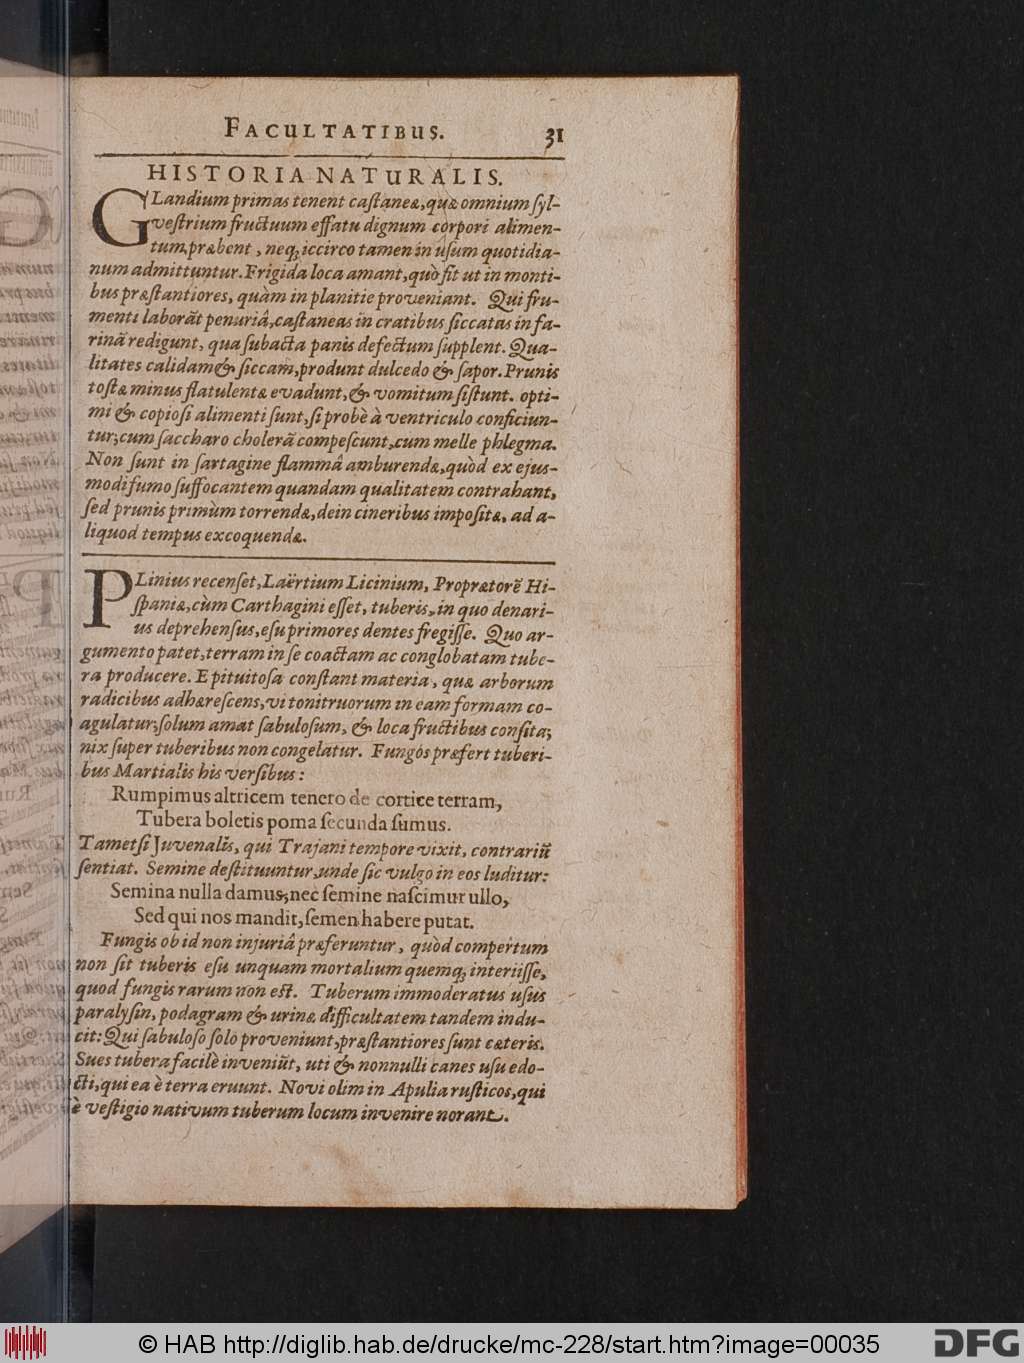 FACULTATIBUS. 31
HISTORIA NATURALIS.
GLandium primas tenent castaneæ, quæ omnium syl-
vestrium fructuum effatu dignum corpori alimen-
tum præbent, neq; iccirco tamen in usum quotidia-
num admittuntur. Frigida loca amant, quò fit ut in monti-
bus præstantiores, quàm in planitie proveniant. Qui fru-
menti laborãt penuriâ, castaneas in cratibus siccatas in fa-
rinã redigunt, qua subacta panis defectum supplent. Qua-
litates calidam & siccam, produnt dulcedo & sapor. Prunis
tostæ minus flatulentæ evadunt, & vomitum sistunt. opti-
mi & copiosi alimenti sunt, si probè à ventriculo conficiun-
tur; cum saccharo cholerã compescunt, cum melle phlegma.
Non sunt in sartagine flammâ amburendæ, quòd ex ejus-
modi fumo suffocantem quandam qualitatem contrahant,
sed prunis primùm torrendæ, dein cineribus impositæ, ad a-
liquod tempus excoquendæ.
PLinius recenset, Laërtium Licinium, Proprætorẽ Hi-
spaniæ, cùm Carthagini esset, tuberis, in quo denari-
us deprehensus, esu primores dentes fregisse. Quo ar-
gumento patet, terram in se coactam ac conglobatam tube-
ra producere. E pituitosa constant materia, quæ arborum
radicibus adhærescens, vi tonitruorum in eam formam co-
agulatur; solum amat sabulosum, & loca fructibus consita;
nix super tuberibus non congelatur. Fungos præfert tuberi-
bus Martialis his versibus:
Rumpimus altricem tenero de cortice terram,
Tubera boletis poma secunda sumus.
Tametsi Juvenalis, qui Trajani tempore vixit, contrariũ
sentiat. Semine destituuntur, unde sic vulgo in eos luditur:
Semina nulla damus; nec semine nascimur ullo,
Sed qui nos mandit, semen habere putat.
Fungis ob id non injuriâ præferuntur, quòd compertum
non sit tuberis esu unquam mortalium quemq; interiisse,
quod fungis rarum non est. Tuberum immoderatus usus
paralysin, podagram & urinæ difficultatem tandem indu-
cit: Qui sabuloso solo proveniunt, præstantiores sunt cæteris.
Sues tubera facilè inveniũt, uti & nonnulli canes usu edo-
cti, qui ea è terra eruunt. Novi olim in Apulia rusticos, qui
è vestigio nativum tuberum locum invenire norant.
© HAB http://diglib.hab.de/drucke/mc-228/start.htm?image=00035
DFG